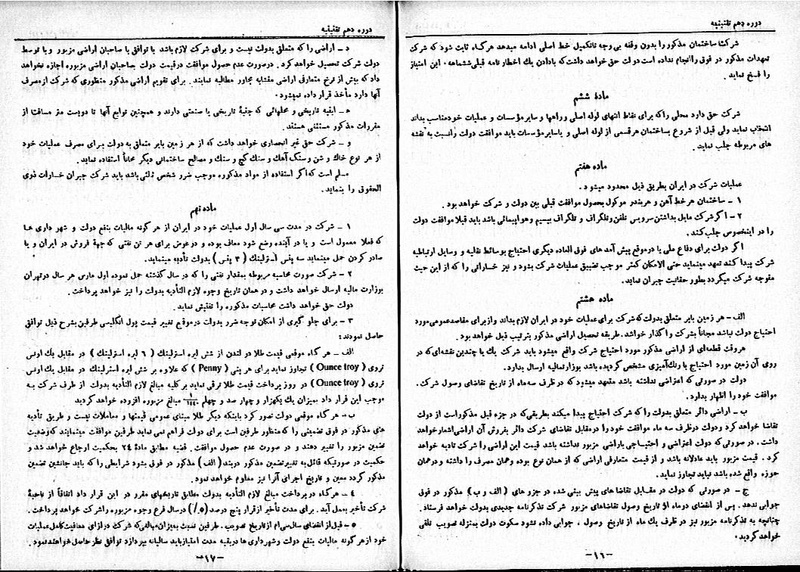 دوره دهم تقنینیه
شرکت ساختمان مذکور را بدون وقفه بی‌وجه تا تکمیل خط اصلی ادامه میدهد هر گاه ثابت شود که شرکت
تعهدات مذکور در فوق را انجام نداده است دولت حق خواهد داشت که بدادن یک اخطار نامه قبلی ششماهه این امتیاز
را فسخ نماید .
مادۀ ششم
شرکت حق دارد محلی را که برای نقاط انتهای لوله اصلی و راهها و سایر مؤسسات و عملیات خود مناسب بداند
انتخاب نماید ولی قبل از شروع بساختمان هر قسمی از لوله اصلی و یا سایر مؤسسات باید موافقت دولت را نسبت به نقشه
های مربوطه جلب نماید .
ماده هفتم
عملیات شرکت در ایران بطریق ذیل محدود میشود .
۱ - ساختمان هر خط آهن و هر بندر موکول بحصول موافقت قبلی بین دولت و شرکت خواهد بود .
۲ - اگر شرکت مایل بداشتن سرویس تلفن و تلگراف و تلگراف بیسیم و هواپیمائی باشد باید قبلا موافقت دولت
را در اینخصوص جلب کند .
اگر دولت برای دفاع ملی یا در موقع پیش آمد های فوق العاده دیگری احتیاج بوسائط نقلیه و وسایل ارتباطیه
شرکت پیدا کند تعهد مینماید حتی الامکان کمتر موجب تضییق عملیات شرکت بشود و نیز خساراتی را که از این حیث
متوجه شرکت میگردد بطور حقانیت جبران نماید .
ماده هشتم
الف - هر زمین بایر متعلق بدولت که شرکت برای عملیات خود در ایران لازم بداند و از برای مقاصد عمومی مورد
احتیاج دولت نباشد مجاناً بشرکت واگذار خواهد شد . طریقه تحصیل اراضی مذکور بترتیب ذیل خواهد بود .
هر وقت قطعه‌ای از اراضی مذکور مورد احتیاج شرکت واقع میشود باید شرکت یک یا چندین نقشه‌ای که در
روی آن زمین مورد احتیاج با رنگ‌آمیزی مشخص گردیده باشد بوزارت مالیه ارسال بدارد .
دولت در صورتی که اعتراضی نداشته باشد متعهد میشود که در ظرف سه ماه از تاریخ تقاضای وصول شرکت .
موافقت خود را اظهار بدارد .
ب - اراضی دائر متعلق بدولت را که شرکت احتیاج پیدا میکند بطریقی که در جزء قبل مذکور است از دولت
تقاضا خواهد کرد و دولت در ظرف سه ماه موافقت خود را در مقابل تقاضای شرکت دائر بفروش آن اراضی اشعار خواهد
داشت . در صورتی که دولت اعتراضی و احتیاجی باراضی مزبور نداشته باشد قیمت این اراضی را شرکت تادیه خواهد
کرد . قیمت مزبور باید عادلانه باشد و از قیمت متعارفی اراضی که از همان نوع بوده و همان مصرف را داشته و در همان
حوزه واقع شده باشد نباید تجاوز نماید .
ج - در صورتی که دولت در مقابل تقاضا های پیش بینی شده در جزو های ( الف و ب ) مذکور در فوق
جوابی ندهد . پس از انقضای دو ماه از تاریخ وصول تقاضاهای مزبور شرکت تذکرنامه جدیدی بدولت خواهد فرستاد .
چنانچه به تذکرنامه مزبور نیز در ظرف یک ماه از تاریخ وصول ، جوابی داده نشود سکوت دولت بمنزله تصویب تلقی
خواهد گردید .
-۱۱-
دوره دهم تقنینیه
د - اراضی را که متعلق بدولت نیست و برای شرکت لازم باشد با توافق با صاحبان اراضی مزبور و با توسط
دولت شرکت تحصیل خواهد کرد . در صورت عدم حصول موافقت در قیمت دولت بصاحبان اراضی مزبوره اجازه نخواهد
داد که بیش از نرخ متعارفی اراضی مشابه مجاور مطالبه نمایند . برای تقویم اراضی مذکور منظوری که شرکت از مصرف
آنها دارد مأخذ قرار داده نمیشود .
ه - ابنیه تاریخی و محلهائی که جنبۀ تاریخی یا صنعتی دارند و همچنین توابع آنها تا دویست متر مسافت از
مقررات مذکور مستثنی هستند .
و - شرکت حق غیر انحصاری خواهد داشت که از هر زمین بایر متعلق به دولت برای مصرف عملیات خود
از هر نوع خاک و شن و سنگ آهک و سنک گچ و سنک و مصالح ساختمانی دیگر مجاناً استفاده نماید .
مسلم است که اگر استفاده از مواد مذکوره موجب ضرر شخص ثالثی باشد باید شرکت جبران خسارات ذوی
الحقوق را بنماید .
ماده نهم
۱ - شرکت در مدت سی سال اول عملیات خود در ایران از هر گونه مالیات بنفع دولت و شهر داری ها
که فعلا معمول است و یا در آینده وضع شود معاف بوده و در عوض برای هر تن نفتی که جهۀ فروش در ایران و یا
صادر کردن حمل مینماید سه پنس استرلینگ ( ۳ پنس ) بدولت تأدیه مینماید .
۲ - شرکت صورت محاسبه مربوطه بمقدار نفتی را که در سال گذشته حمل نموده اول مارس هر سال در تهران
بوزارت مالیه ارسال خواهد داشت و در همان تاریخ وجوه لازم التأدیه بدولت را نیز خواهد پرداخت .
دولت حق خواهد داشت محاسبات مذکوره را تفتیش نماید .
۳ - برای جلو گیری از امکان توجه ضرر بدولت در موقع تغییر قیمت پول انگلیسی طرفین بشرح ذیل توافق
حاصل نمودند :
الف - هر گاه موقعی قیمت طلا در لندن از شش لیره استرلینک ( ۶ لیره استرلینک ) در مقابل یک اونس
تروی ( Ounce troy ) تجاوز نماید برای هر پنی ( Penny ) که علاوه بر شش لیره استرلینک در مقابل یک اونس
تروی ( Ounce troy ) در روز پرداخت قیمت طلا ترقی نماید بر کلیه مبالغ لازم التأدیه بدولت از طرف شرکت به
موجب این قرار داد . بمیزان یک یکهزار و چهار صد و چهلم ۱/۱۴۴۰ مبالغ مزبور افزوده خواهد گردید
ب - هر گاه موقعی دولت تصور کرد باینکه دیگر طلا مبنای عمومی قیمتها و معاملات نیست و طریق تأدیه
های مذکور در فوق تضمینی را که منظور طرفین است برای دولت فراهم نمی نماید طرفین موافقت مینمایند که وضعیت
تضمین مزبور را تغییر دهند و در صورت عدم حصول موافقت . قضیه مطابق مادۀ ۲۴ بحکمیت ارجاع خواهد شد و
حکمیت در صورتیکه قائل به تغییر تضمین مذکور در بند ( الف ) مذکور در فوق بشود شرایطی را که باید جانشین تضمین
مذکور گردد معین و تاریخ اجرای آنرا نیز مقاوم خواهد نمود .
۴ - هر گاه در پرداخت مبالغ لازم التأدیه بدولت مطابق تاریخهای مقرر در این قرار داد اتفاقاً از ناحیۀ
شرکت تأخیر بعمل آید . برای مدت تأخیر از قرار پنج درصد (٥٪) در سال فرع وجوه مزبوره را شرکت خواهد پرداخت .
۵ - قبل از انقضای سال سی ام از تاریخ تصویب . طرفین نسبت بمیزان مبالغی که شرکت در ازای معافیت کامل عملیات
خود از هر گونه مالیات بنفع دولت و شهرداری ها در بقیه مدت امتیاز باید سالیانه بپردازد توافق نظر حاصل خواهند نمود .
-۱۷-